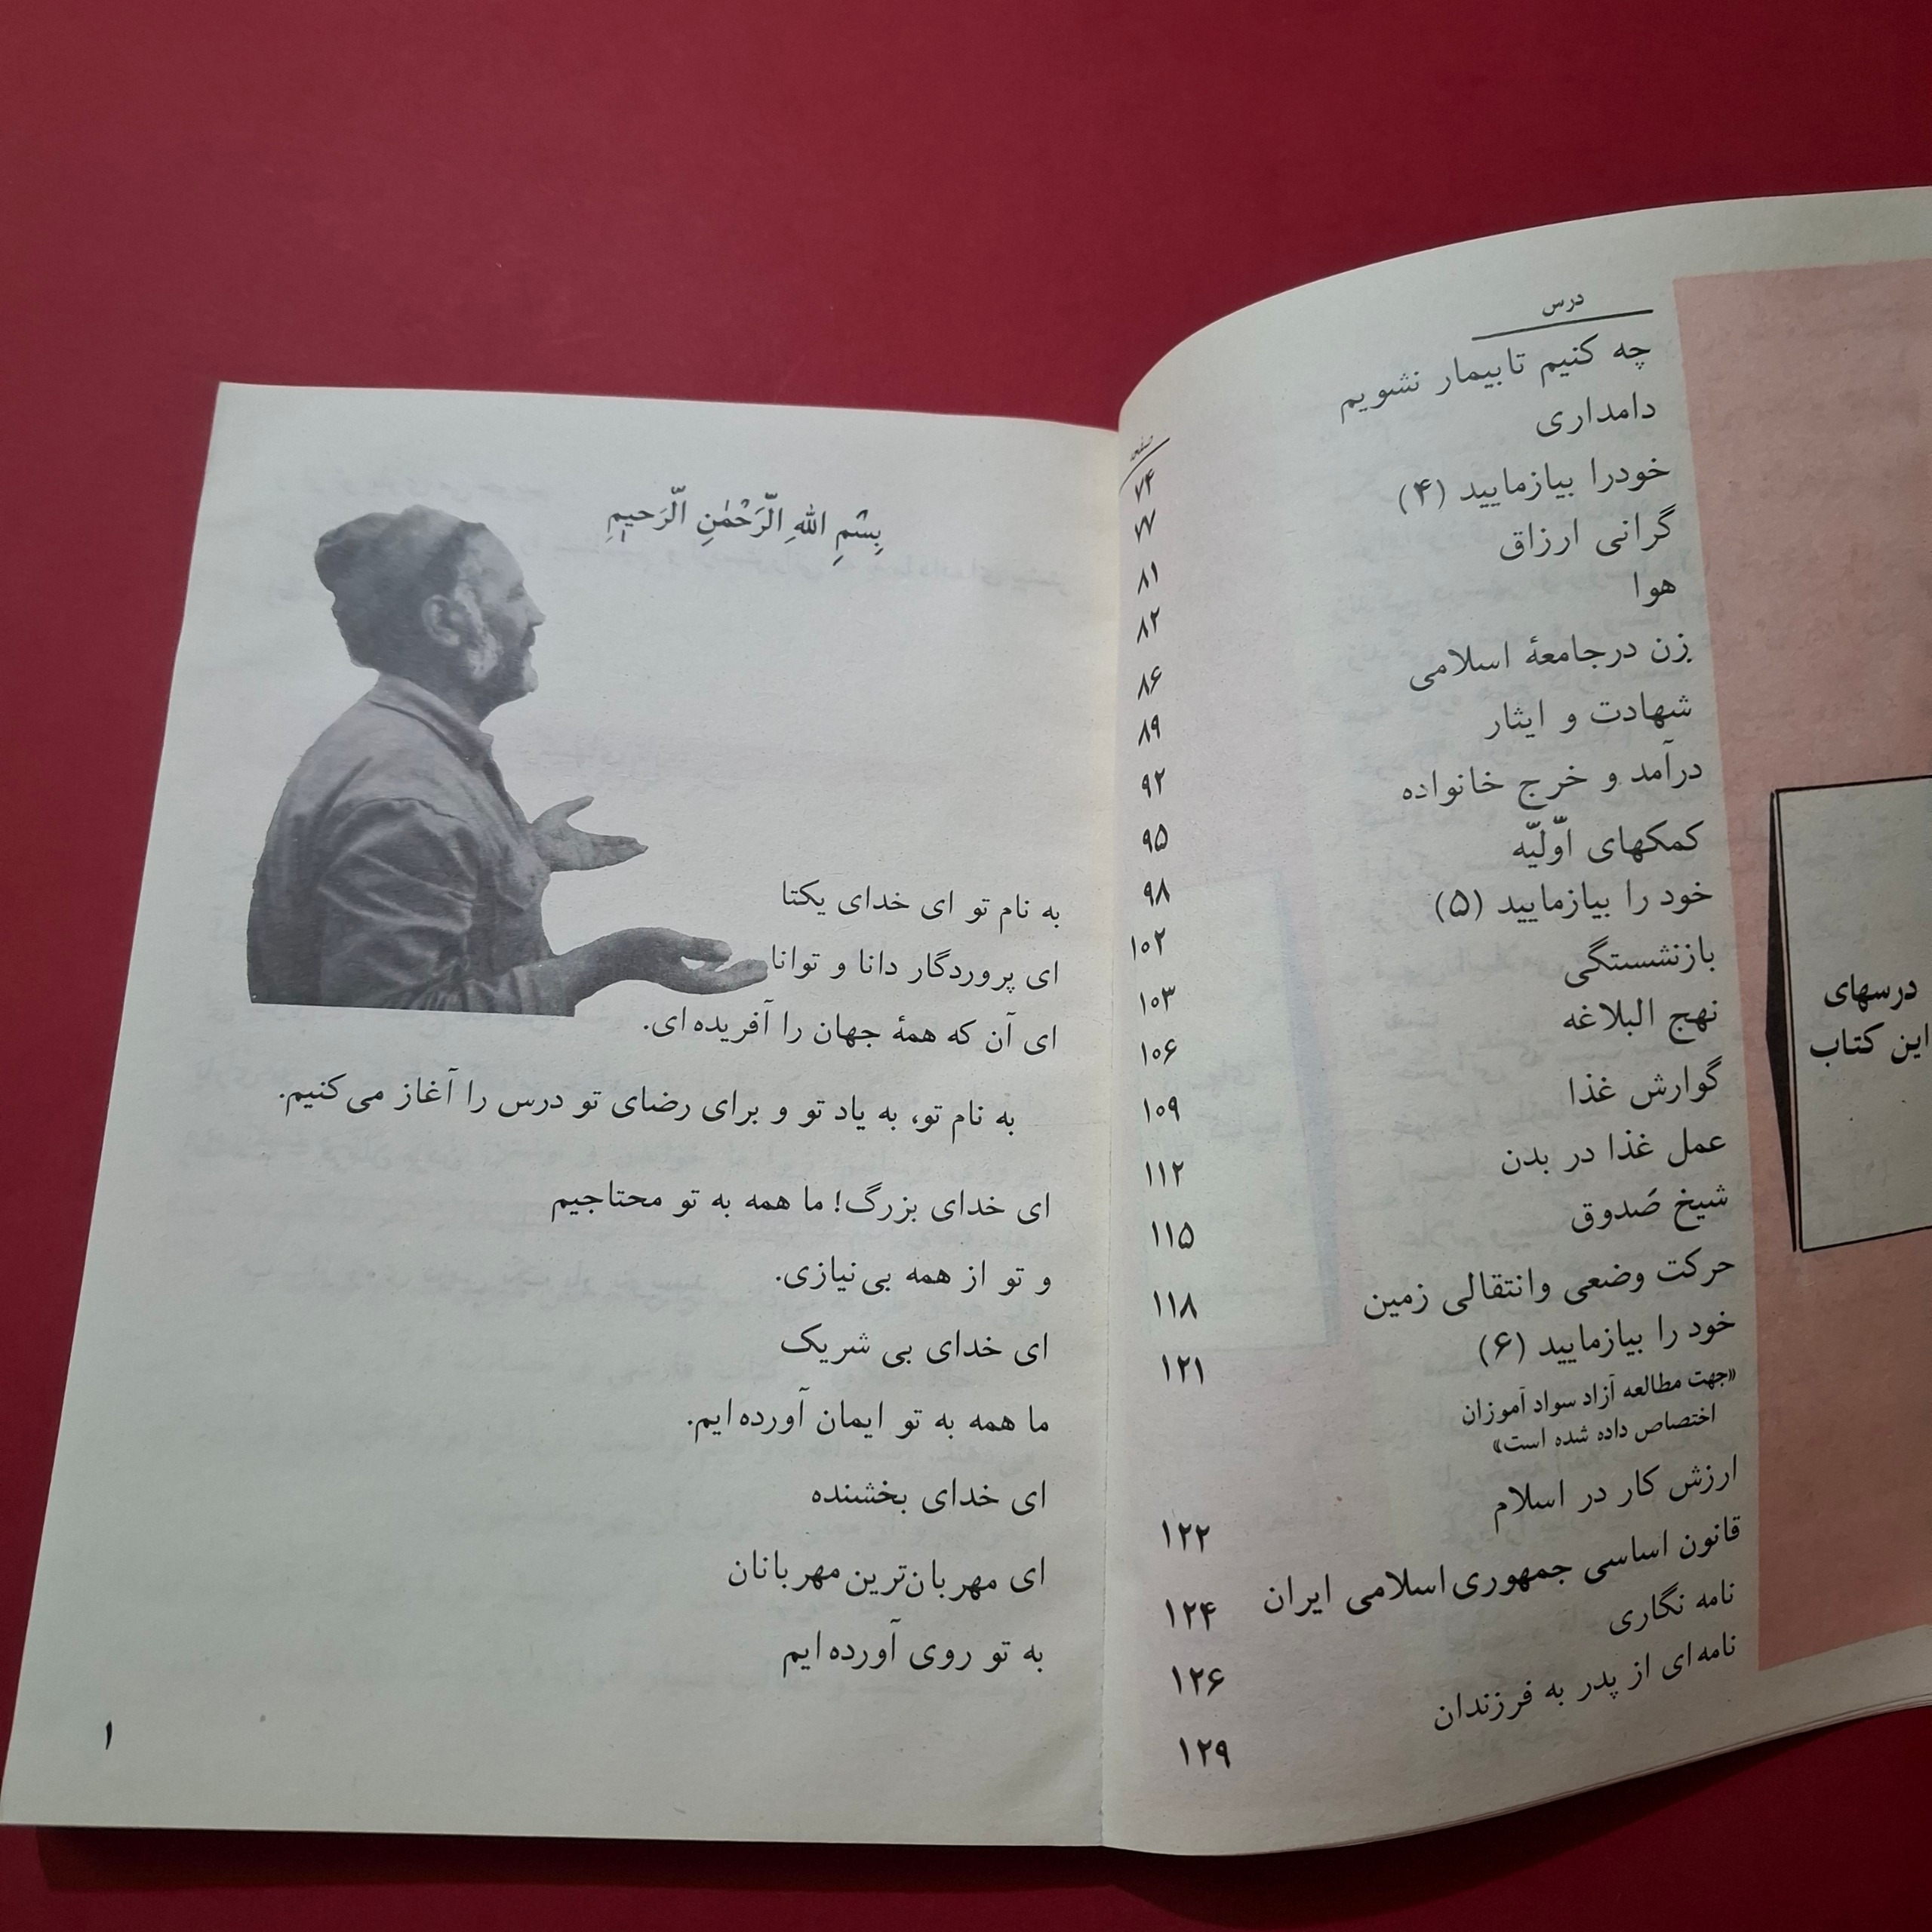 درس
صفحه
چه کنیم تا بیمار نشویم ۷۴
دامداری ۷۷
خودرا بیازمایید (۴) ۸۱
گرانی ارزاق ۸۲
هوا ۸۶
زن درجامعهٔ اسلامی ۸۹
شهادت و ایثار ۹۲
درآمد و خرج خانواده ۹۵
کمکهای اوّلیّه ۹۸
خود را بیازمایید (۵) ۱۰۲
بازنشستگی ۱۰۳
نهج البلاغه ۱۰۶
گوارش غذا ۱۰۹
عمل غذا در بدن ۱۱۲
شیخ صَدوق ۱۱۵
حرکت وضعی وانتقالی زمین ۱۱۸
خود را بیازمایید (۶) ۱۲۱
«جهت مطالعه آزاد سواد آموزان
اختصاص داده شده است»
ارزش کار در اسلام ۱۲۲
قانون اساسی جمهوری اسلامی ایران ۱۲۴
نامه نگاری ۱۲۶
نامه‌ای از پدر به فرزندان ۱۲۹
درسهای
این کتاب
بِسْمِ اللهِ الرَّحْمٰنِ الرَّحیمِ
به نام تو ای خدای یکتا
ای پروردگار دانا و توانا
ای آن که همهٔ جهان را آفریده‌ای.
به نام تو، به یاد تو و برای رضای تو درس را آغاز می‌کنیم.
ای خدای بزرگ! ما همه به تو محتاجیم
و تو از همه بی‌نیازی.
ای خدای بی شریک
ما همه به تو ایمان آورده‌ایم.
ای خدای بخشنده
ای مهربان‌ترین مهربانان
به تو روی آورده‌ایم
۱